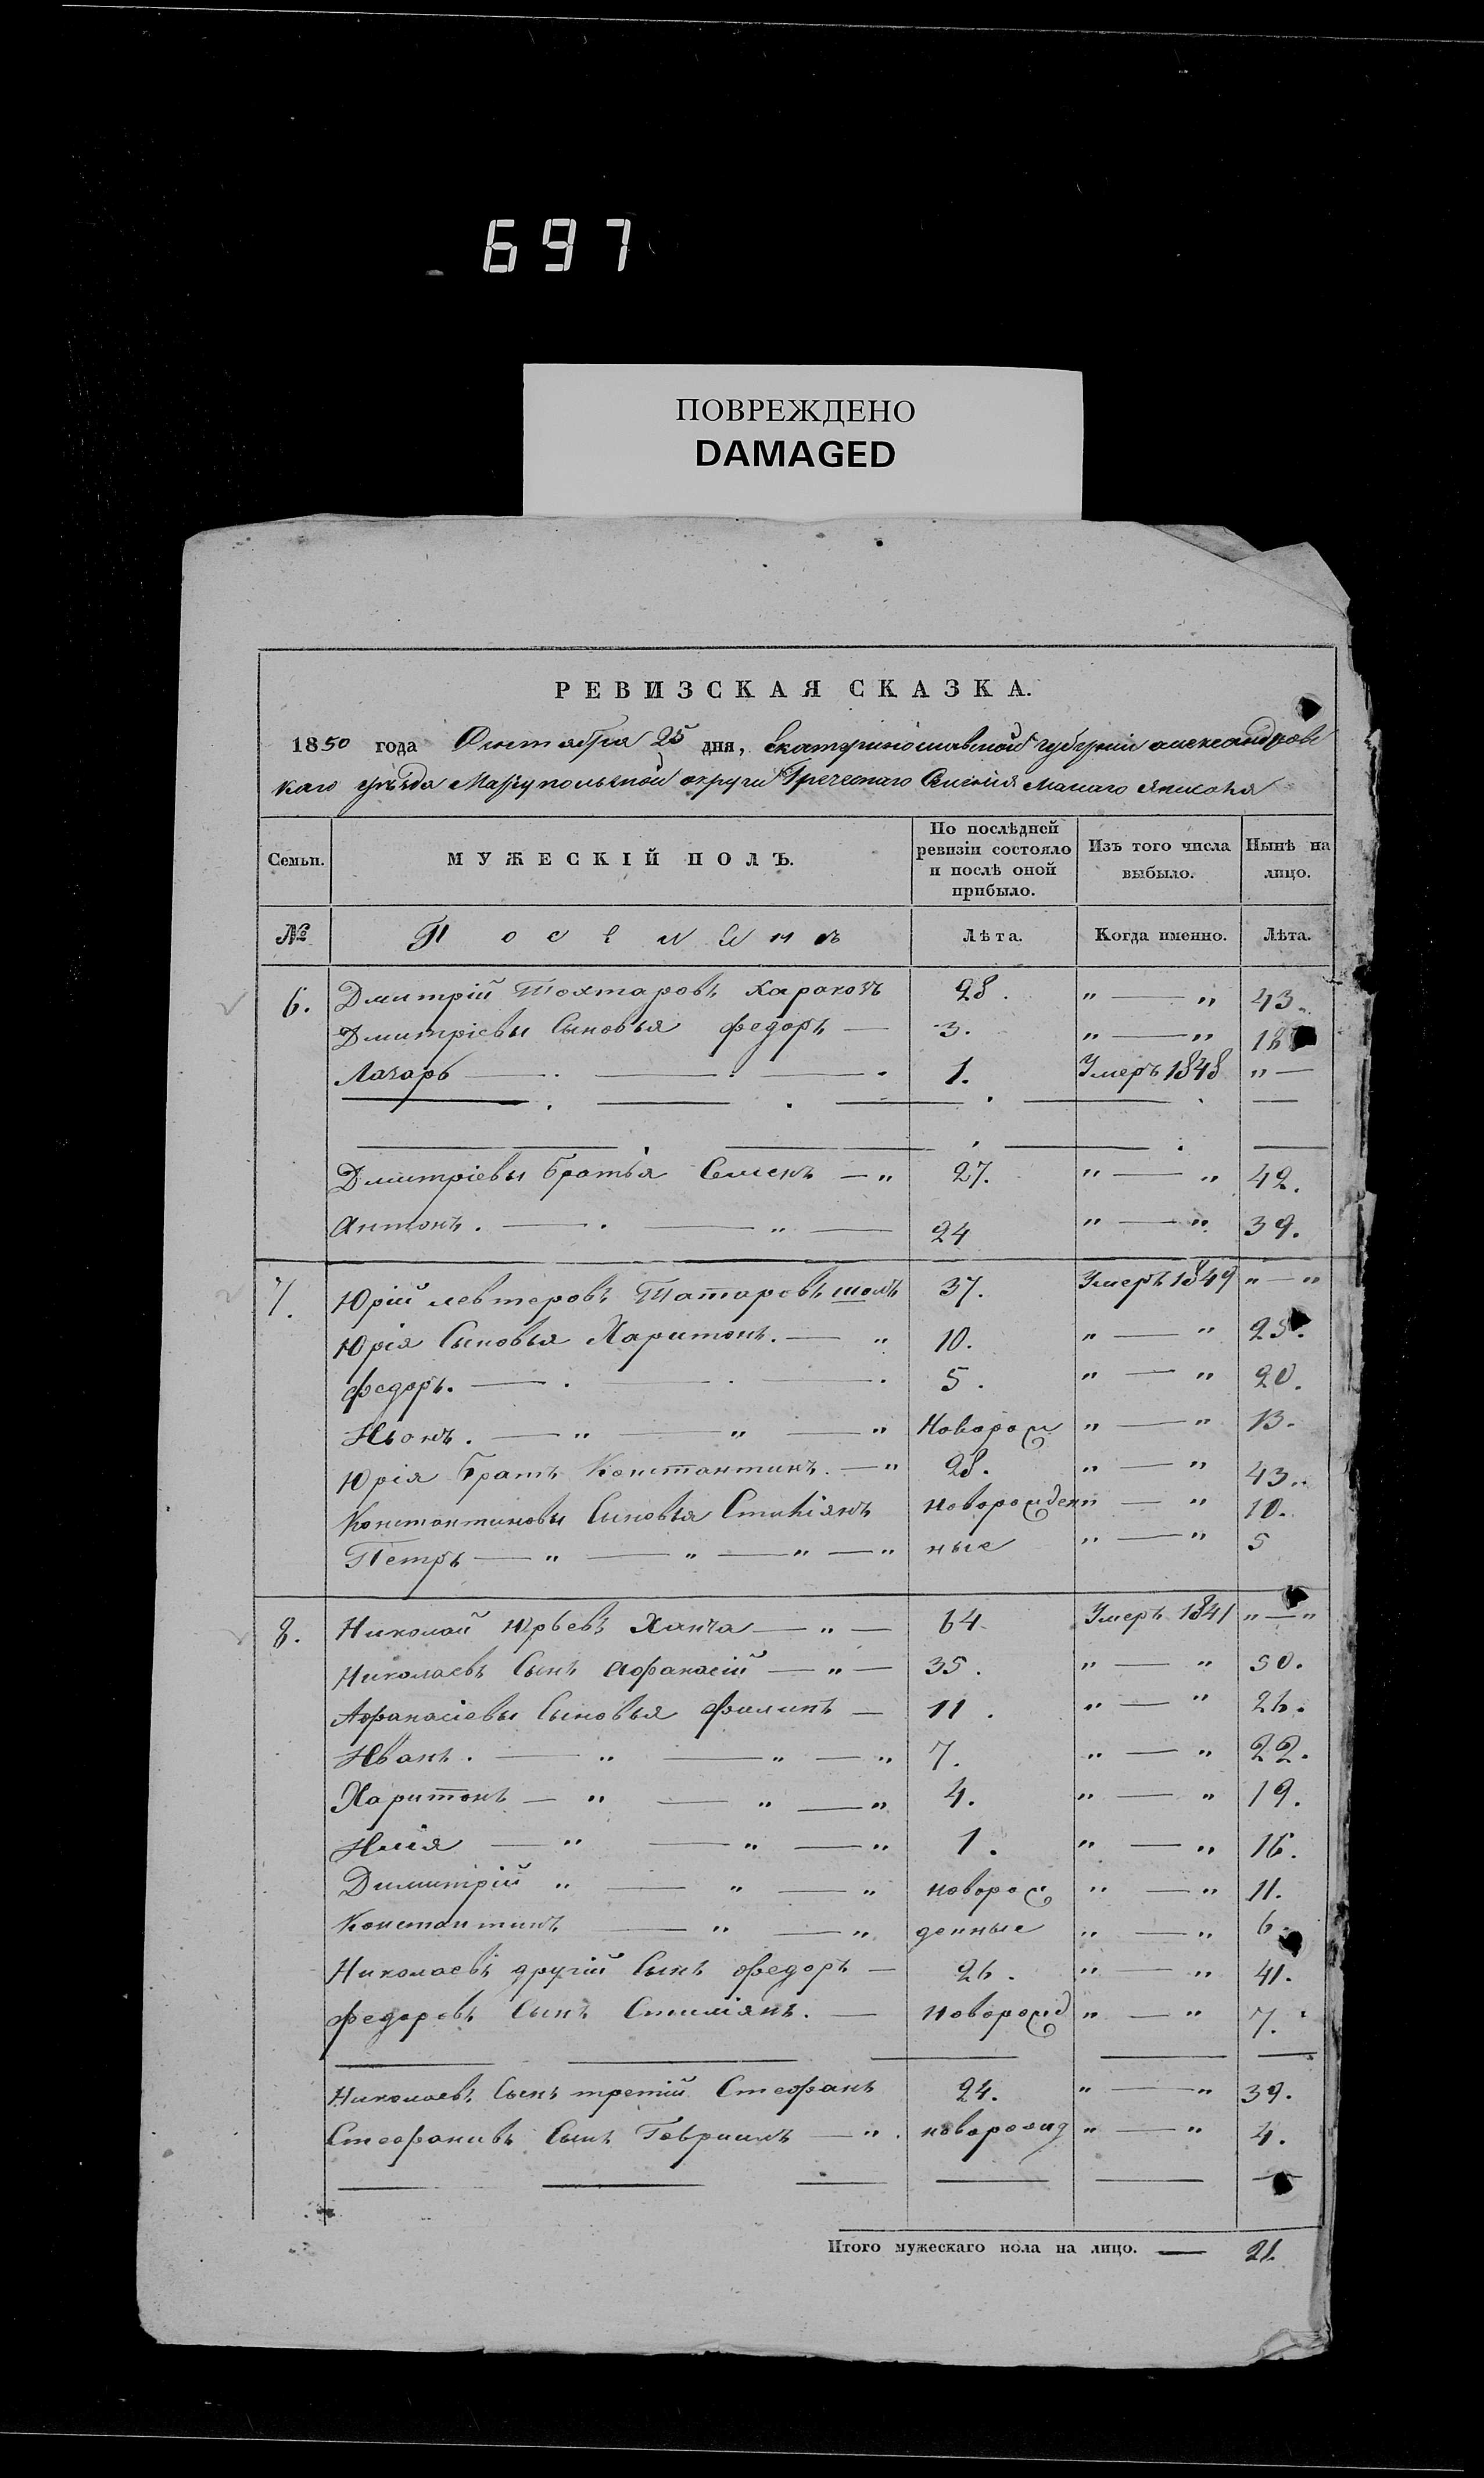 697
ПОВРЕЖДЕНО
DAMAGED
РЕВИЗСКАЯ СКАЗКА.
1850 года Октября 25 дня, Екатеринославской губерніи александровс
каго уѣзда Маріупольской округи Греческаго Селенія Малаго Янисоля
Семьи. МУЖЕСКІЙ ПОЛЪ. По послѣдней ревизіи состояло и послѣ оной прибыло. Изъ того числа выбыло. Нынѣ на лицо.
№ Поселянъ Лѣта. Когда именно. Лѣта.
6. Дмитрій Тохтаровъ 28. " — " 43.
Дмитріевы Сыновья Федоръ — 3. " — " 18
Лазарь — . — . — . 1. Умеръ 1848 " —
Дмитріевы братья Семенъ — " 27. " — " 42.
Антонъ . — . — " — 24 " — " 39.
7. Юрій левтеровъ Татаровъ 37. Умеръ 1849 " — "
Юрія Сыновья Харитонъ. — " 10. " — " 25.
Федоръ. — . — . — . 5. " — " 20.
Иванъ . — " — " — " Новорож " — " 13.
Юрія братъ Константинъ. — " 28. " — " 43.
Константиновы Сыновья новорожден " — " 10.
Петръ — " — " — " — " ные " — " 5
8. Николай Юрьевъ Ханча — " — 64 Умеръ 1841 " — "
Николаевъ Сынъ Афанасій — " — 35. " — " 50.
Афанасіевы Сыновья Филипъ — 11. " — " 26.
Иванъ . — " — " — " 7. " — " 22.
Харитонъ — " — " — " 4. " — " 19.
Илія — " — " — " 1. " — " 16.
Димитрій " — " — " новорож " — " 11.
Константинъ — " — " денные " — " 6.
Николаевъ другій Сынъ Федоръ — 26. " — " 41.
Федоровъ Сынъ Стиліянъ. — новорожд " — " 7.
Николаевъ Сынъ третій Стефанъ 24. " — " 39.
Стефановъ Сынъ Гавріилъ — " . новорожд " — " 4.
Итого мужескаго пола на лицо. — 21.